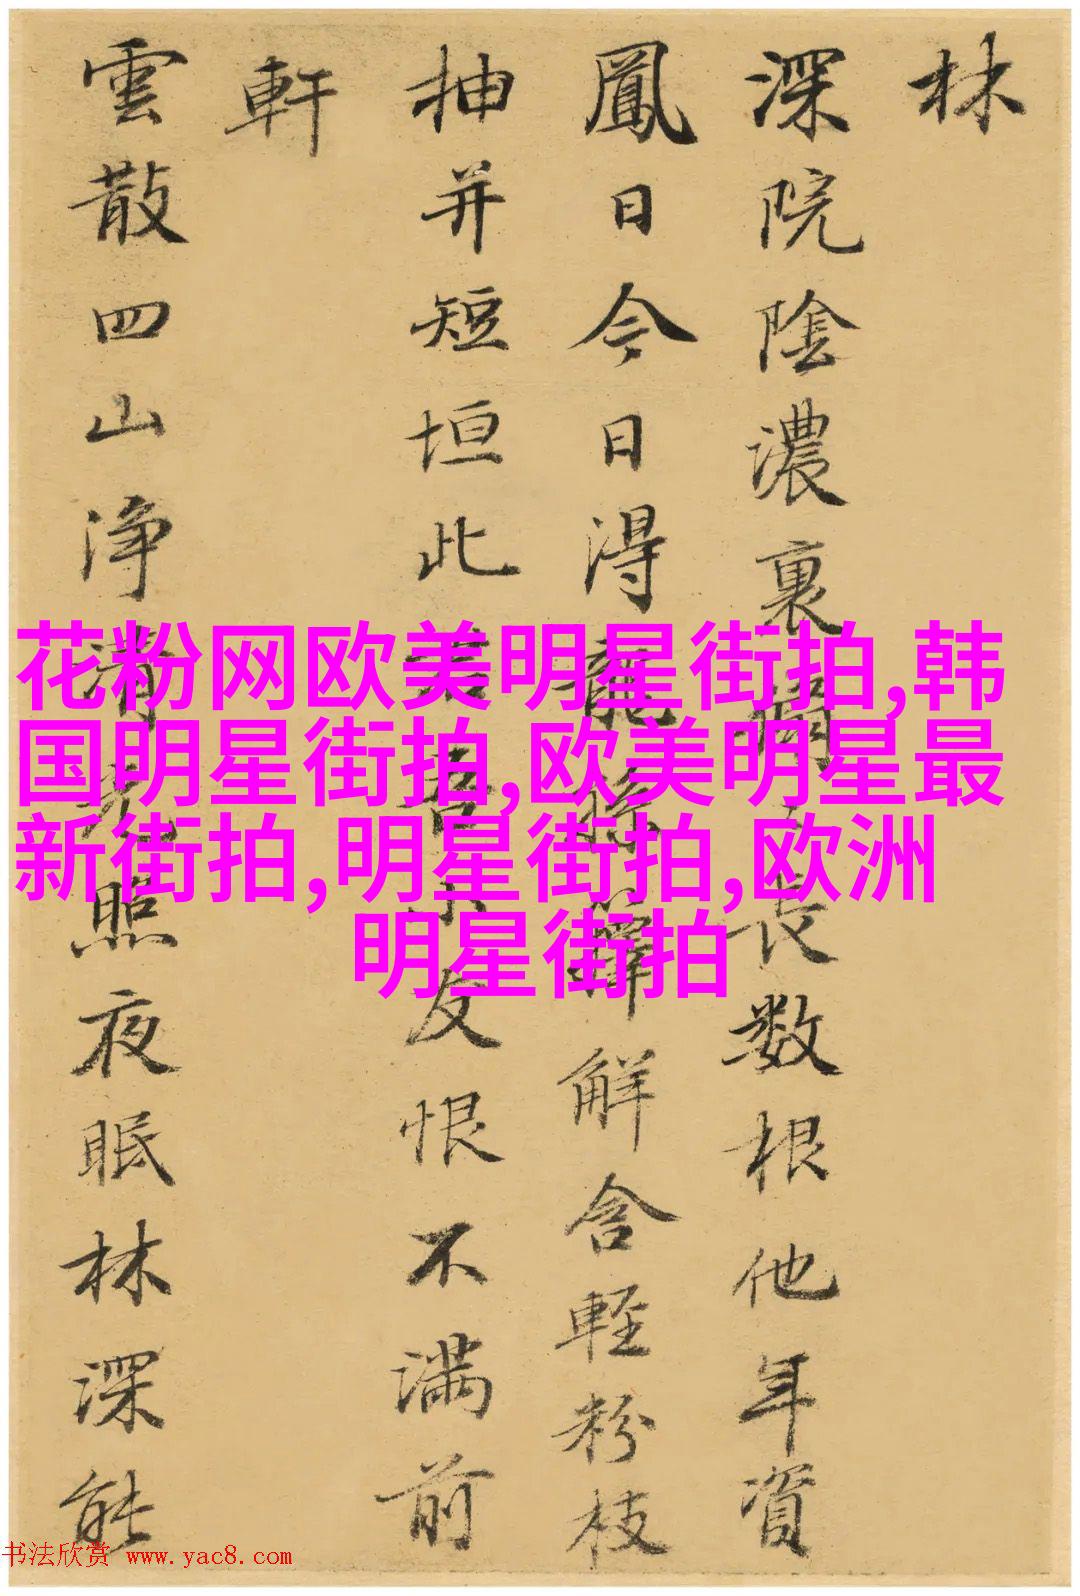 林
深院陰濃裏長数根他年資
鳳日今日得龍孫籜解含輕粉枝
抽并短垣此君吾小友恨不满前
軒
雲散四山浄清光照夜眠林深能
花粉网欧美明星街拍,韩
国明星街拍,欧美明星最
新街拍,明星街拍,欧洲
明星街拍
书法欣赏 www.yac8.com